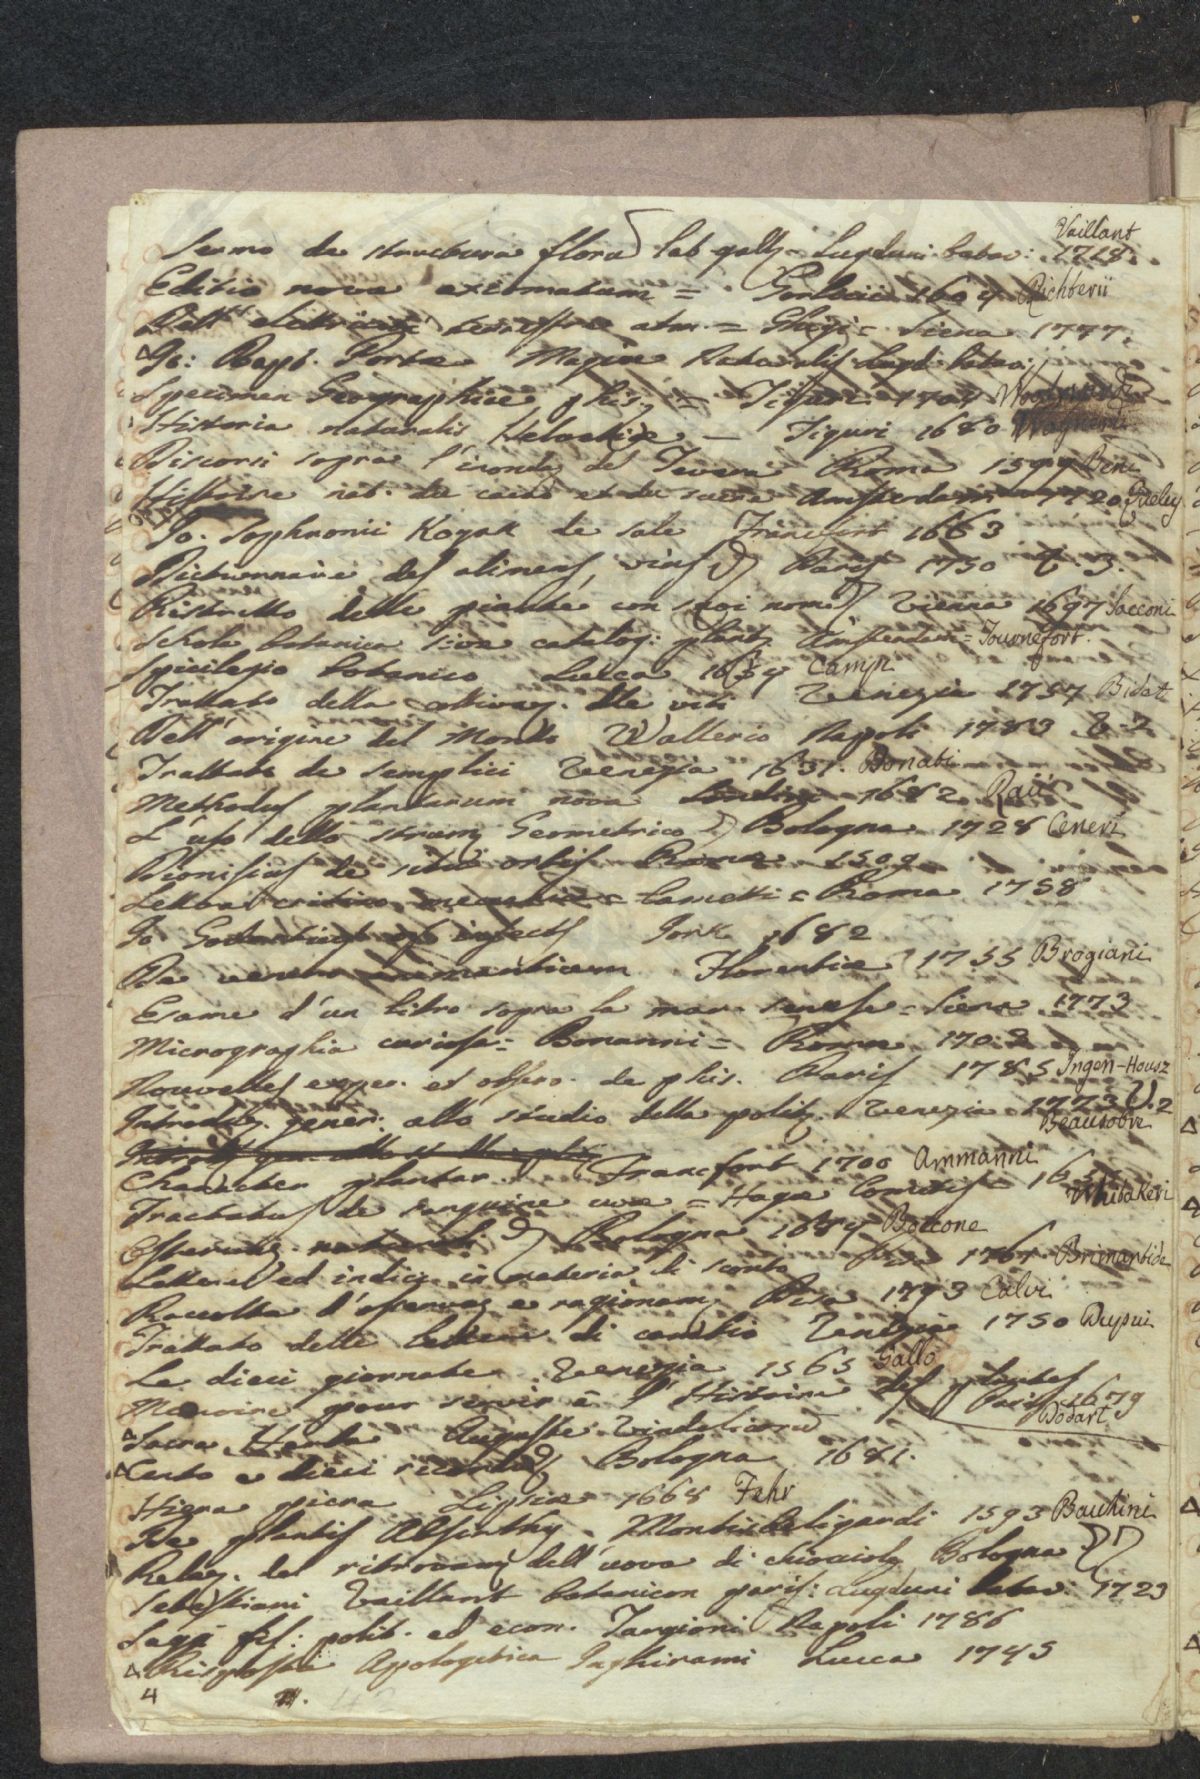 Vaillant
Sermo de structura florū lat gall = Lugduni batav: 1718.
Editio nova axiomatum = Gorlicii 1604 Richterii
Dell' elettricità terrestre atm. = Ghigi = Siena 1777.
Jo: Bapt. Portæ Magiæ Naturalis Lugd: batav:
Specimen Geographiæ phis. = Tiguri 1704 Woodwardi
Historia naturalis Helvetiæ = Tiguri 1680 Wagneri
Discorsi sopra l'inondaz del Tevere Roma 1599
Histoire nat. du cacao et du sucre Amsterdam 1720 Quelus
Jo. Sophronii Kozak de sale Francfort 1663
Dictionnaire des alimens, vins Paris 1750 T. 3.
Ristretto delle piante con suoi nomi Vienna 1697 Sacconi
Schola botanica sive catalog: plant. Amsterdam = Tournefort.
Spicilegio botanico Lucca 1654 Campi
Trattato della coltivaz. delle viti Venezia 1757 Bidet
Dell' origine del Mondo Wallerio Napoli 1783 T. 2
Trattato de semplici Venezia 1631. Donati
Methodus plantarum nova Londini 1682 Raii
L'uso dello strum. Geometrico Bologna 1728 Ceneri
Dionisius de situ orbis Roma
Lettera critico meccanica = Lametti = Roma 1758
Jo Godartius of insects York 1682
De veneno animantium Florentiæ 1755 Brogiani
Esame d'un libro sopra la mar. senese = Siena 1773
Micrographia curiosa = Bonanni = Romæ 1703
Nouvelles exper. et observ. de phis. Paris 1785 Ingen-Housz
Introduz. gener. allo studio della polit. Venezia 1773 V. 2
Beausobre
Character plantar. Francfort 1700 Ammanni
Tractatus de sanguine uvæ = Hagæ Comitis 16 Whitakeri
Osservaz. naturali Bologna 1684 Boccone
Lettere ed indici in materia di sconto Pisa
Raccolta d'osservaz e ragionam. Pisa 1793 Calvi
Trattato delle lettere di cambio Venezia 1750 Dupui
Le dieci giornate Venezia 1565 Gallo
Memoire pour servir à l'Histoire des plantes Paris 1679
Dodart
Sacra Herba Augustæ Vindelicorū
Cento e dieci ricordi Bologna 1681.
Hiera picra Lipsiæ 1668 Fehr
De plantis Absinthy. Montisbeligardi 1593 Bauhini
Relaz. del ritrovam. dell'uova di chiociole Bologna
Sebastiani Vaillant botanicon paris: Lugduni batav: 1723
Saggi fis: polit. ed econ. Targioni Napoli 1786
Risposta Apologetica Inghirami Lucca 1745
4